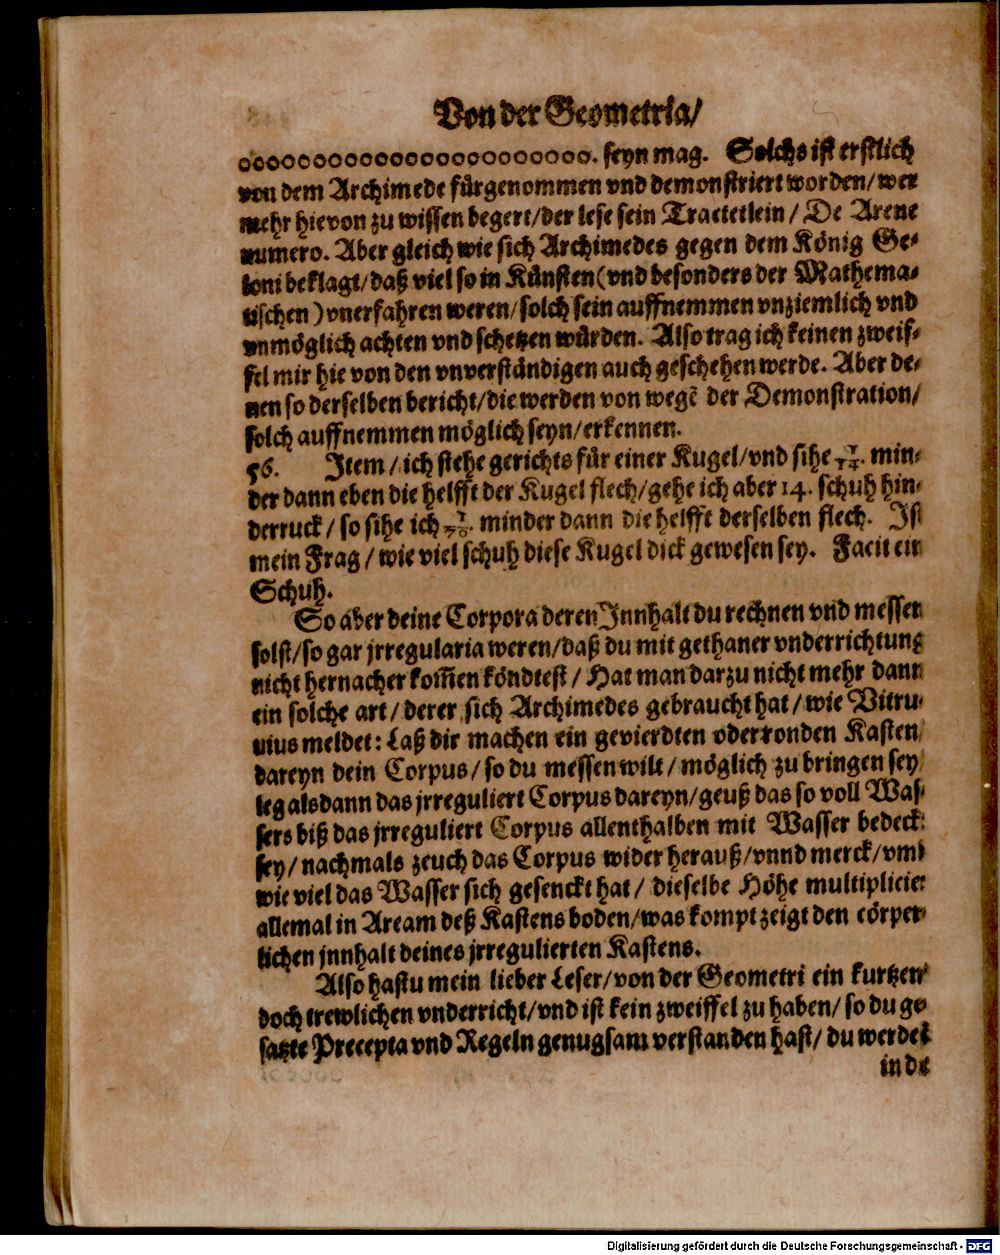 Von der Geometria/
ooooooooooooooooooooooo. seyn mag. Solchs ist erstlich
von dem Archimede fürgenommen vnd demonstriert worden/wer
mehr hievon zu wissen begert/der lese sein Tractetlein / De Arene
numero. Aber gleich wie sich Archimedes gegen dem König Ge-
loni beklagt/daß viel so in Künsten(vnd besonders der Mathema-
tischen) vnerfahren weren/solch sein auffnemmen vnziemlich vnd
vnmöglich achten vnd schetzen würden. Also trag ich keinen zweif-
fel mir hie von den vnverständigen auch geschehen werde. Aber de-
nen so derselben bericht/die werden von wegẽ der Demonstration/
solch auffnemmen möglich seyn/erkennen.
56. Item/ich stehe gerichts für einer Kugel/vnd sihe min-
der dann eben die helfft der Kugel flech/gehe ich aber 14. schuh hin-
derruck/so sihe ich minder dann die helfft derselben flech. Ist
mein Frag/wie viel schuh diese Kugel dick gewesen sey. Facit ein
Schuh.
So aber deine Corpora deren Innhalt du rechnen vnd messen
solst/so gar jrregularia weren/daß du mit gethaner vnderrichtung
nicht hernacher kom̃en köndtest/ Hat man darzu nicht mehr dann
ein solche art/derer sich Archimedes gebraucht hat/wie Vitru-
uius meldet: Laß dir machen ein gevierdten oder ronden Kasten
dareyn dein Corpus/so du messen wilt/möglich zu bringen sey
leg alsdann das jrreguliert Corpus dareyn/geuß das so voll Was-
sers biß das jrreguliert Corpus allenthalben mit Wasser bedeckt
sey/nachmals zeuch das Corpus wider herauß/vnnd merck/vmb
wie viel das Wasser sich gesenckt hat/ dieselbe Höhe multiplicier
allemal in Aream deß Kastens boden/was kompt zeigt den cörper-
lichen jnnhalt deines jrregulierten Kastens.
Also hastu mein lieber Leser/von der Geometri ein kurtzen
doch trewlichen vnderricht/vnd ist kein zweiffel zu haben/so du ge-
satzte Precepta vnd Regeln genugsam verstanden hast/du werdest
in de
Digitalisierung gefördert durch die Deutsche Forschungsgemeinschaft - DFG